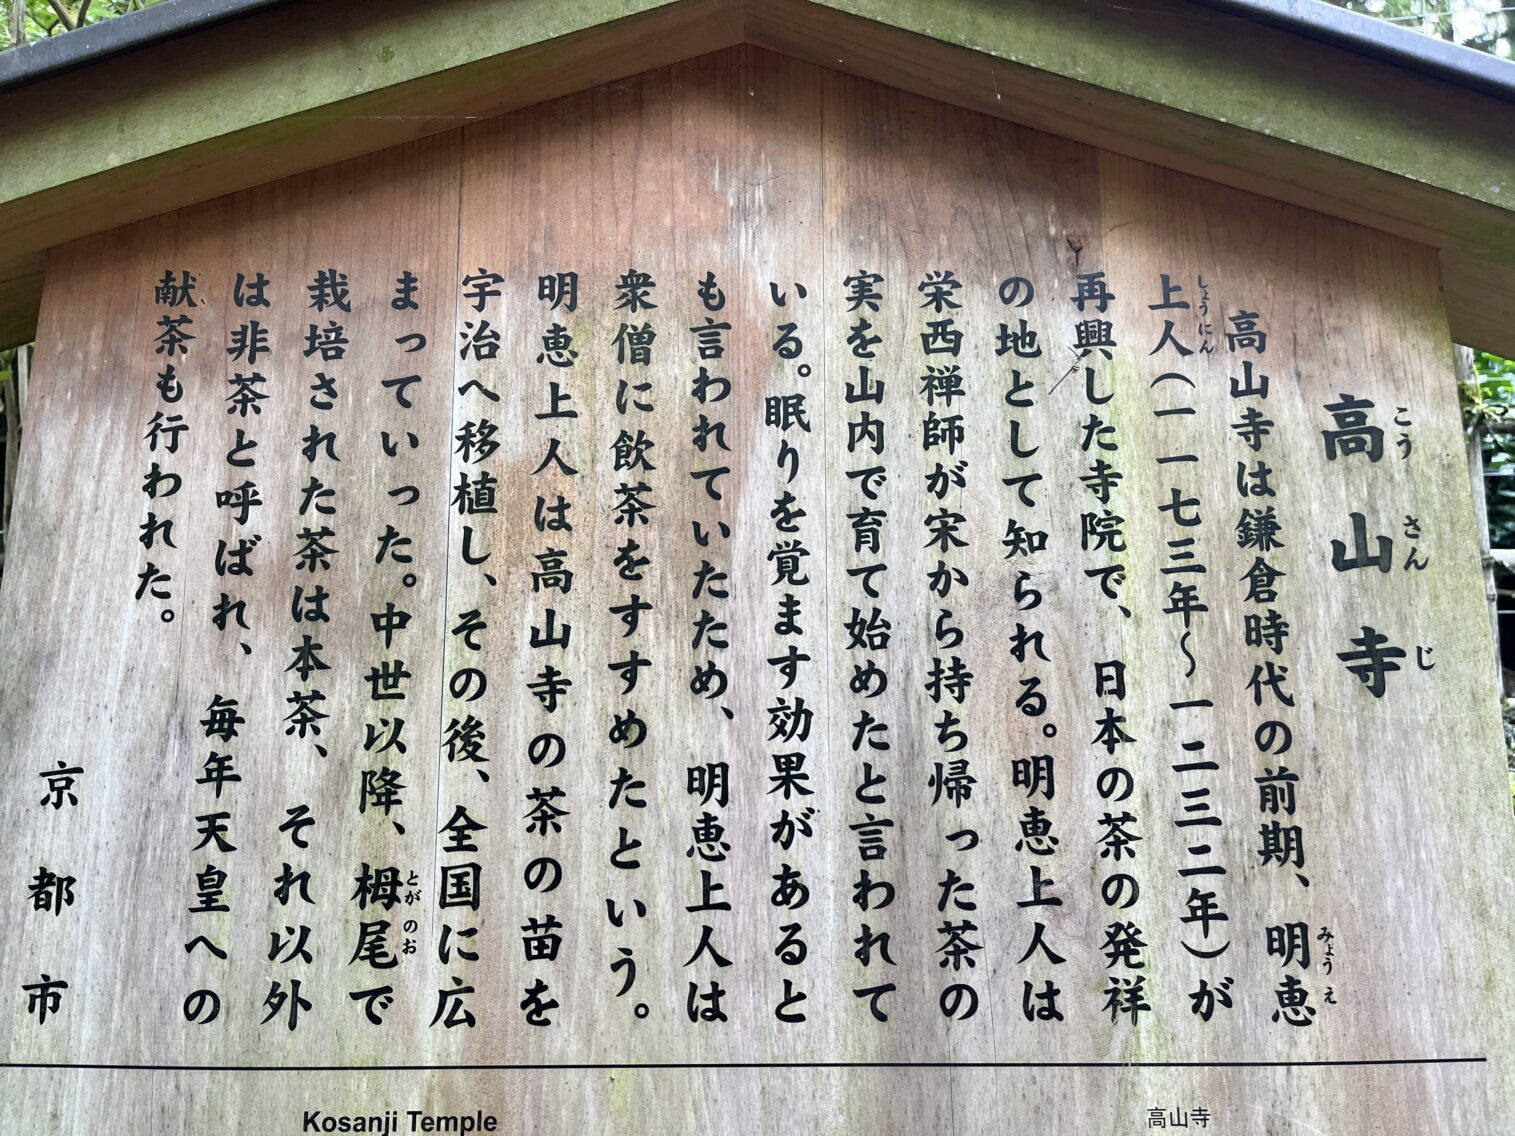 高山寺
こうさんじ
高山寺は鎌倉時代の前期、明恵
みょうえ
上人（一一七三年〜一二三二年）が
しょうにん
再興した寺院で、日本の茶の発祥
の地として知られる。明恵上人は
栄西禅師が宋から持ち帰った茶の
実を山内で育て始めたと言われて
いる。眠りを覚ます効果があると
も言われていたため、明恵上人は
衆僧に飲茶をすすめたという。
明恵上人は高山寺の茶の苗を
宇治へ移植し、その後、全国に広
まっていった。中世以降、栂尾で
とがのお
栽培された茶は本茶、それ以外
は非茶と呼ばれ、毎年天皇への
献茶も行われた。
京都市
Kosanji Temple
高山寺